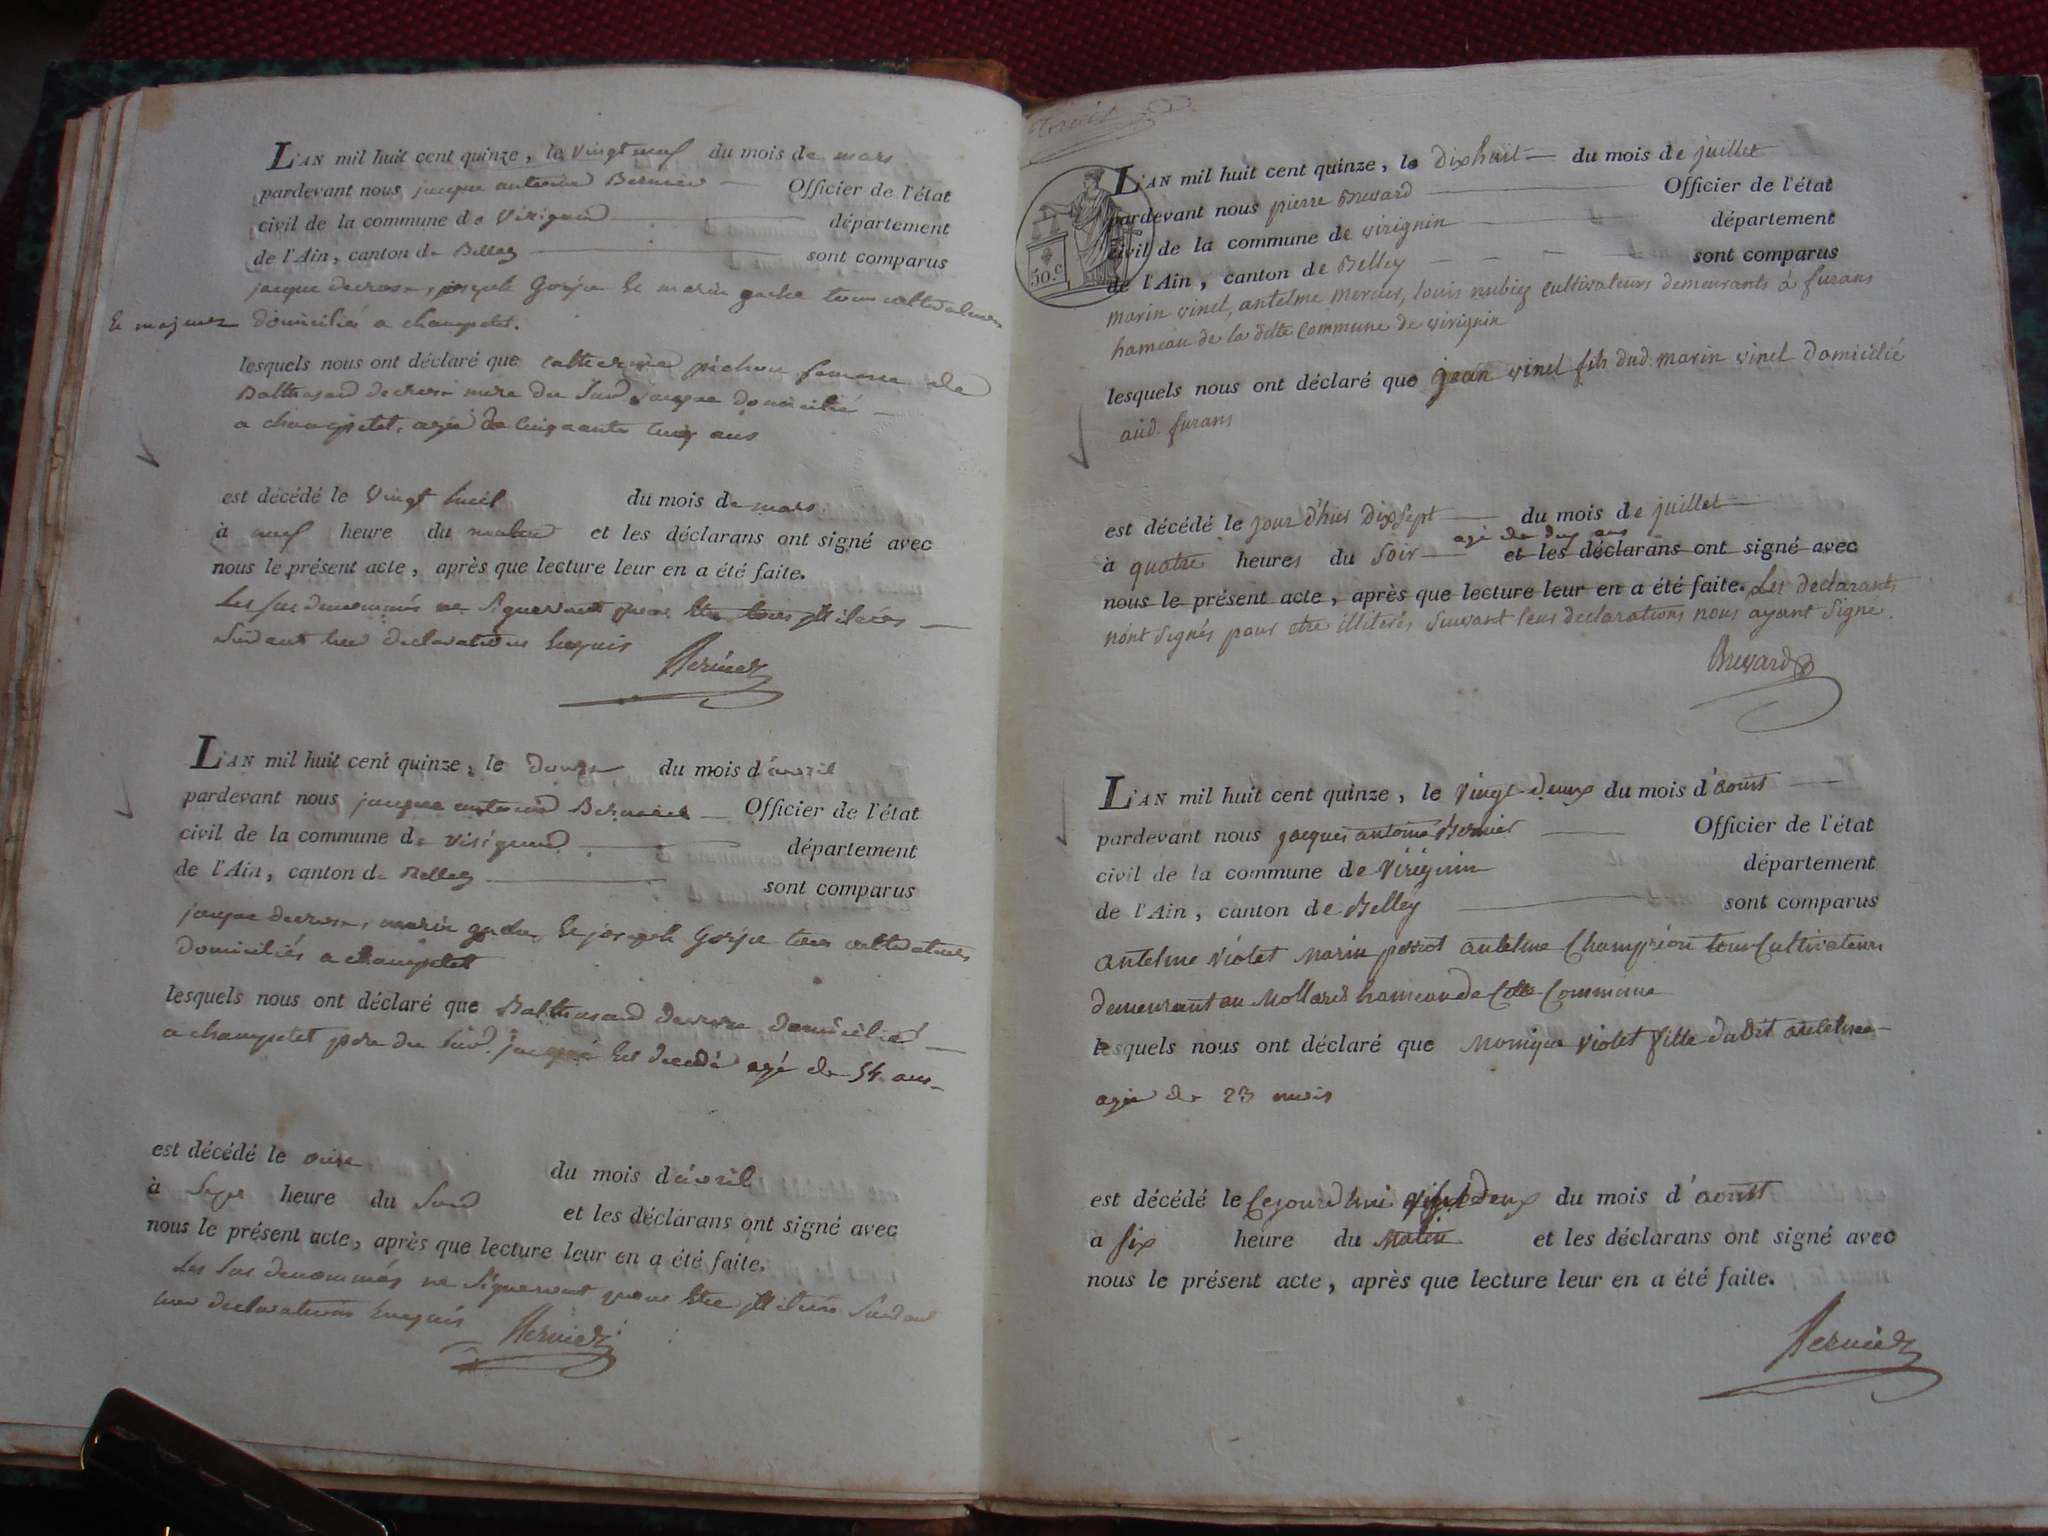 L'AN mil huit cent quinze, le vingt neuf du mois de mars
pardevant nous jacque antoine Bernier Officier de l'état
civil de la commune de Virignin département
de l'Ain, canton de Belley sont comparus
jacque decrose, joseph Gojon et marin gache tous cultivateurs
et majeurs domiciliés a champetel.
lesquels nous ont déclaré que catherine pichon femme de
Balthasard decrose mere du Sud jacque domicilié
a champetel, agée de cinquante cinq ans
est décédé le vingt huit du mois de mars
à neuf heure du matin et les déclarans ont signé avec
nous le présent acte, après que lecture leur en a été faite.
Les sus denommés ne Signeront pour être tous illiterés
Suivant leur declarations Enquis
Bernier
L'AN mil huit cent quinze, le douze du mois d'avril
pardevant nous jacque antoine Bernier Officier de l'état
civil de la commune de Virignin département
de l'Ain, canton de Belley sont comparus
jacque decrose, marin gache, et joseph Gojon tous cultivateurs
domiciliés a champetel
lesquels nous ont déclaré que Balthasard decrose domicilié
a champetel pere du Sud. jacque est decedé agé de 54 ans
est décédé le onze du mois d'avril
à Sept heure du Soir et les déclarans ont signé avec
nous le présent acte, après que lecture leur en a été faite.
Les Sus denommés ne Signeront pour être illiterés Suivant
leur declarations Enquis Bernier
L'AN mil huit cent quinze, le Dix huit du mois de juillet
pardevant nous pierre Bruvard Officier de l'état
civil de la commune de virignin département
50.c de l'Ain, canton de Belley sont comparus
marin vinel, antelme mercier, louis rubiez cultivateurs demeurants à furans
hameau de la ditte commune de virignin
lesquels nous ont déclaré que jean vinel fils dud. marin vinel domicilié
aud. furans
est décédé le jour d'hier Dix Sept du mois de juillet
agé de dix ans
à quatre heures du Soir et les déclarans ont signé avec
nous le présent acte, après que lecture leur en a été faite. Les declarants
n'ont signés pour etre illiterés, suivant leurs declarations nous ayant signe.
Bruvard
L'AN mil huit cent quinze, le vingt-deux du mois d'aoust
pardevant nous jacques antoine Bernier Officier de l'état
civil de la commune de Virignin département
de l'Ain, canton de Belley sont comparus
antelme violet Marin perrot antelme Champrion tous Cultivateurs
demeurant au Mollard hameau de Cette Commune
lesquels nous ont déclaré que Monique violet fille du dit antelme
agée de 23 mois
est décédé le Cejourd'hui vingt deux du mois d'aoust
à six heure du Matin et les déclarans ont signé avec
nous le présent acte, après que lecture leur en a été faite.
Bernier